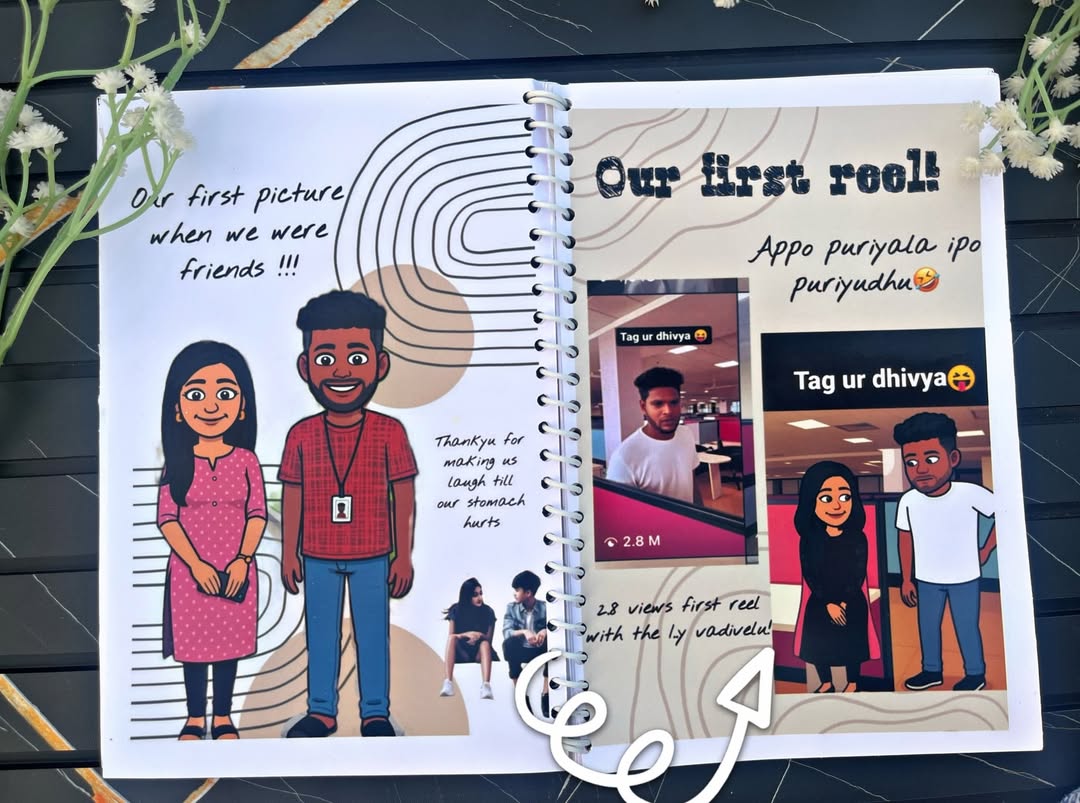 Our first picture
when we were
friends !!!
Thankyu for
making us
laugh till
our stomach
hurts
Our first reel!
Appo puriyala ipo
puriyudhu🤣
Tag ur dhivya 😝
2.8 M
Tag ur dhivya😝
2.8 views first reel
with the I.y vadivelu!